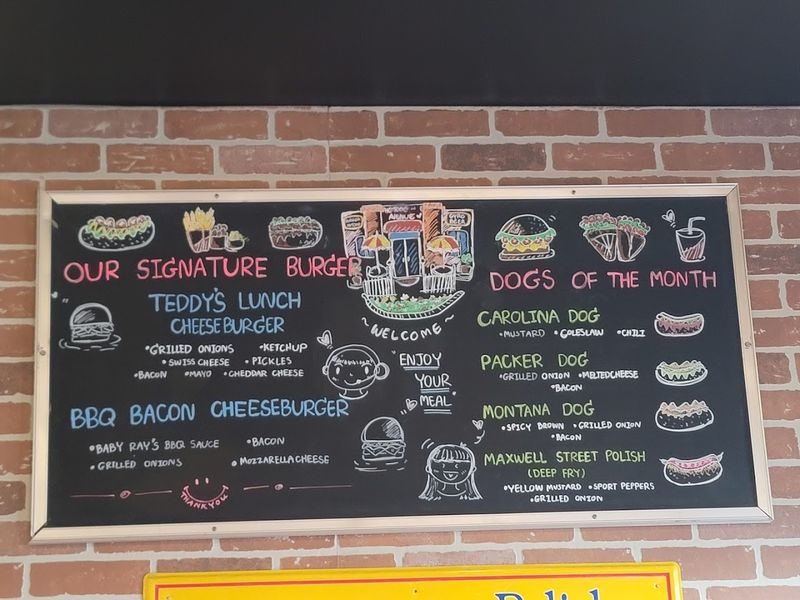 OUR SIGNATURE BURGER
TEDDY'S LUNCH
CHEESEBURGER
•GRILLED ONIONS •KETCHUP
•SWISS CHEESE •PICKLES
•BACON •MAYO •CHEDDAR CHEESE
BBQ BACON CHEESEBURGER
•BABY RAY'S BBQ SAUCE •BACON
•GRILLED ONIONS •MOZZARELLA CHEESE
THANK YOU
AVENUE
~WELCOME~
ENJOY
YOUR
MEAL
DOGS OF THE MONTH
CAROLINA DOG
•MUSTARD •COLESLAW •CHILI
PACKER DOG
•GRILLED ONION •MELTED CHEESE
•BACON
MONTANA DOG
•SPICY BROWN •GRILLED ONION
•BACON
MAXWELL STREET POLISH
(DEEP FRY)
•YELLOW MUSTARD •SPORT PEPPERS
•GRILLED ONION
Polish